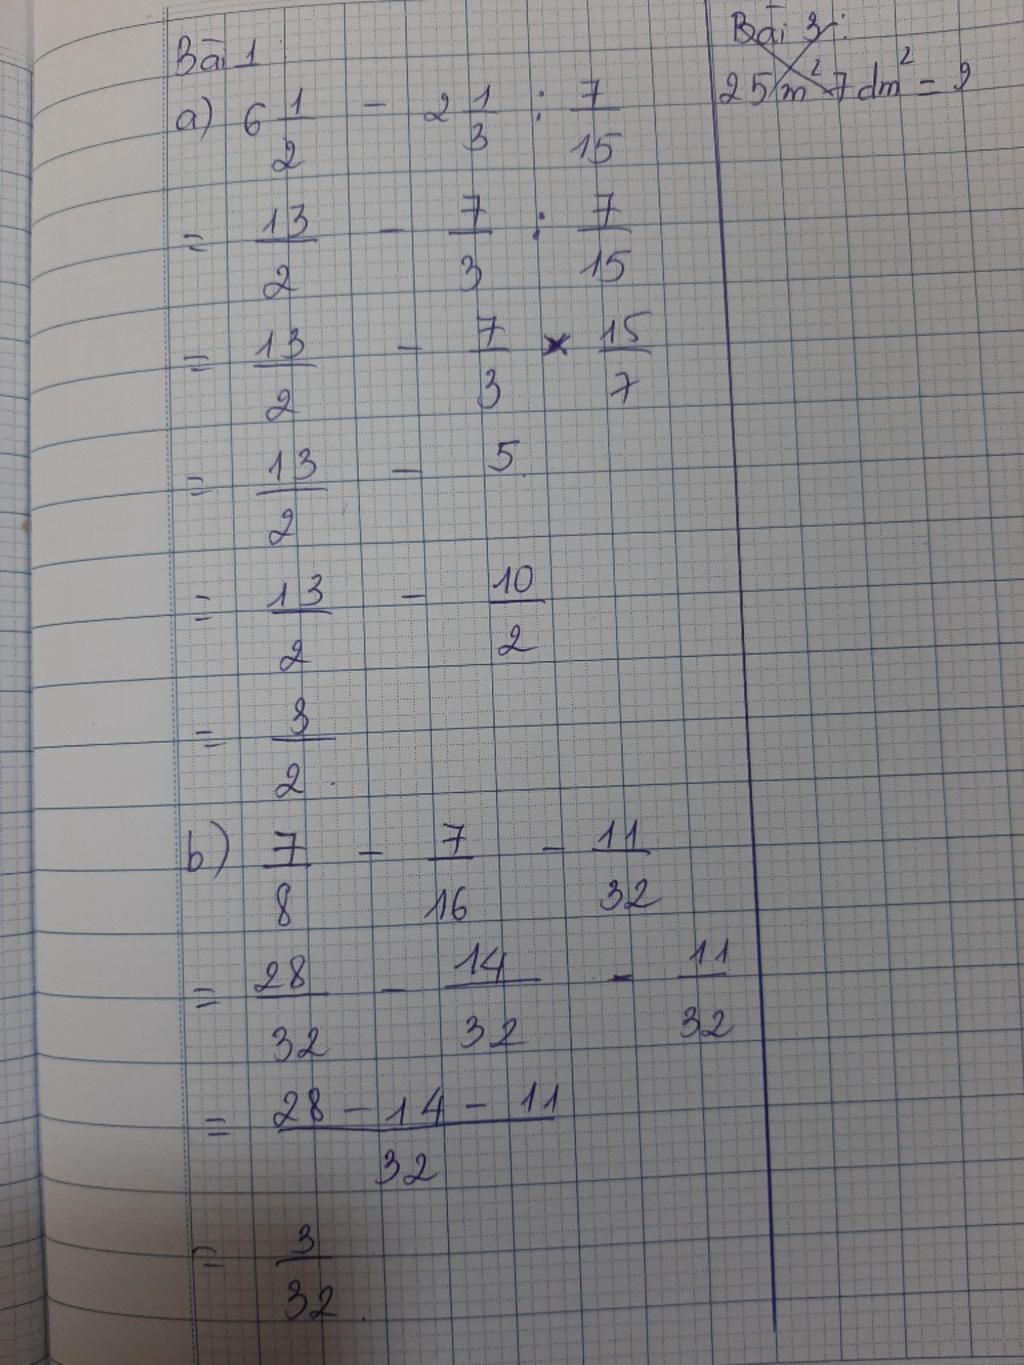 Bài 1
a) 6 1/2 - 2 1/3 : 7/15
= 13/2 - 7/3 : 7/15
= 13/2 - 7/3 × 15/7
= 13/2 - 5
= 13/2 - 10/2
= 3/2.
b) 7/8 - 7/16 - 11/32
= 28/32 - 14/32 - 11/32
= 28 - 14 - 11/32
= 3/32.
Bài 3:
25 m² 7 dm² = 2